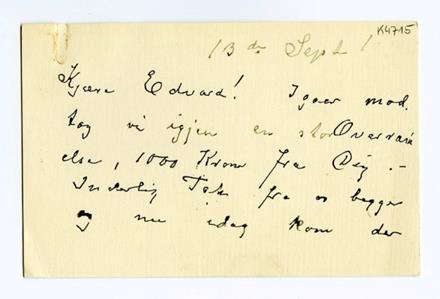 K4715
13de Sept!
Kjære Edvard! Igaar mod-
tog vi igjen en stor Overrask
else, 1000 Kroner fra Dig. –
Inderlig Tak fra os begge
og nu idag kom der